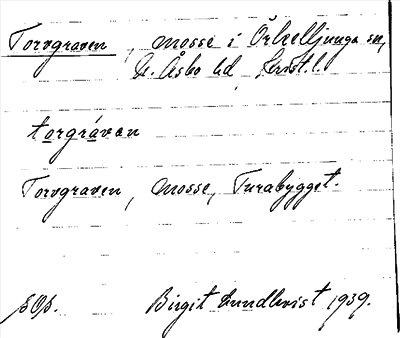 Torvgraven, mosse i Örkelljunga sn,
N. Åsbo hd, Krist. l.
torgráven
Torvgraven, mosse, Turabygget.
Birgit Lundkvist 1939.